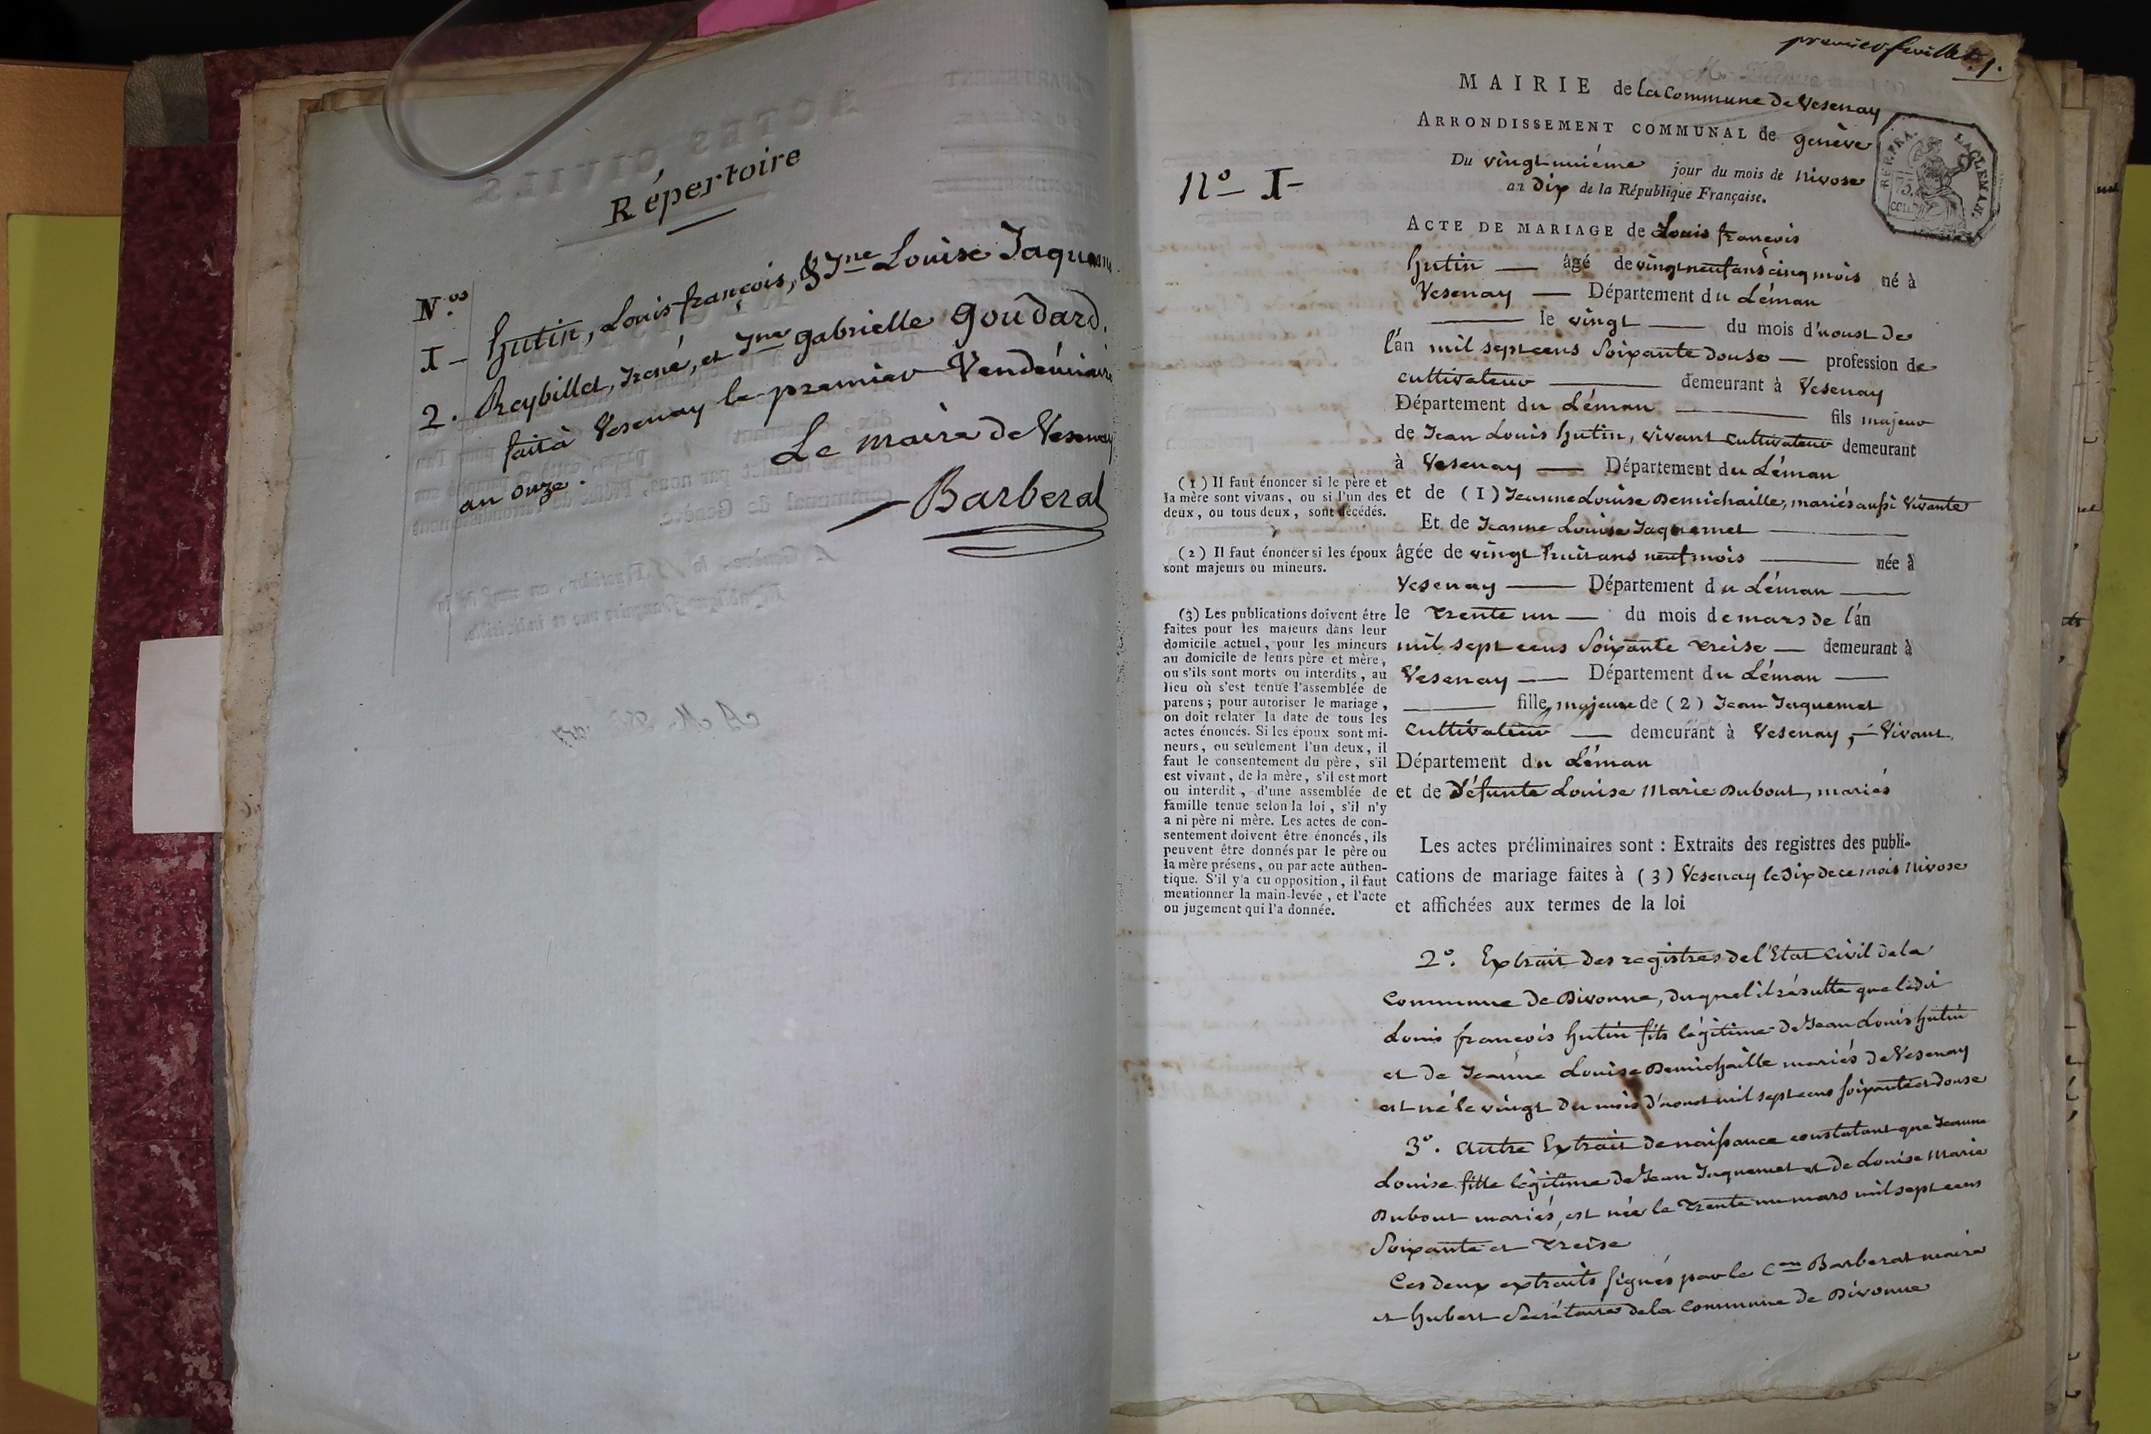 Répertoire
N.os
1 - Hutin, Louis françois, & Jne Louise Jaquem
2. Reybillet, Irené, et Jne gabrielle Goudard.
fait à Vesenay le premier Vendémiaire
an onze.
Le maire de Vesenay
Barberat
premier feuillet. 1.
MAIRIE de la Commune de Vesenay
ARRONDISSEMENT COMMUNAL de genève
Nº I -
Du vingt uniéme jour du mois de Nivose
an dix de la République Française.
ACTE DE MARIAGE de Louis françois
hutin — âgé de vingt neuf ans cinq mois né à
Vesenay — Département du Léman
— le vingt — du mois d'aoust de
l'an mil sept cens Soixante douse — profession de
cultivateur — demeurant à Vesenay
Département du Léman — fils majeur
de Jean Louis hutin, vivant Cultivateur demeurant
à Vesenay — Département du Léman
et de (1) Jeanne Louise Demichaille, mariés aussi Vivante
Et de Jeanne Louise Jaquemet —
âgée de vingt huit ans neuf mois — née à
Vesenay — Département du Léman —
le trente un — du mois de mars de l'an
mil sept cens Soixante treise — demeurant à
Vesenay — Département du Léman —
— fille majeure de (2) Jean Jaquemet
Cultivateur — demeurant à Vesenay, - Vivant.
Département du Léman
et de Défunte Louise Marie Dubout, mariés
Les actes préliminaires sont : Extraits des registres des publi-
cations de mariage faites à (3) Vesenay le dix de ce mois Nivose
et affichées aux termes de la loi
2º. Extrait des registres de l'Etat Civil de la
Commune de Divonne, duquel il résulte que ledit
Louis françois hutin fils légitime de Jean Louis hutin
et de Jeanne Louise Demichaille mariés de Vesenay
est né le vingt du mois d'aoust mil sept cens soixante et douse
3º. Autre Extrait de naissance constatant que Jeanne
Louise fille légitime de Jean Jaquemet et de Louise Marie
Dubout mariés, est née le trente un mars mil sept cens
Soixante et treise
Ces deux extraits signés par le Cen Barberat maire
et hubert Secrétaire de la Commune de Divonne
(1) Il faut énoncer si le père et
la mère sont vivans, ou si l'un des
deux, ou tous deux, sont décédés.
(2) Il faut énoncer si les époux
sont majeurs ou mineurs.
(3) Les publications doivent être
faites pour les majeurs dans leur
domicile actuel, pour les mineurs
au domicile de leurs père et mère,
ou s'ils sont morts ou interdits, au
lieu où s'est tenue l'assemblée de
parens ; pour autoriser le mariage,
on doit relater la date de tous les
actes énoncés. Si les époux sont mi-
neurs, ou seulement l'un deux, il
faut le consentement du père, s'il
est vivant, de la mère, s'il est mort
ou interdit, d'une assemblée de
famille tenue selon la loi, s'il n'y
a ni père ni mère. Les actes de con-
sentement doivent être énoncés, ils
peuvent être donnés par le père ou
la mère présens, ou par acte authen-
tique. S'il y'a eu opposition, il faut
mentionner la main-levée, et l'acte
ou jugement qui l'a donnée.